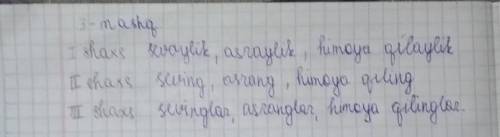 3-mashq
I shaxs sevaylik, asraylik, himoya qilaylik
II shaxs seving, asrang, himoya qiling
III shaxs sevinglar, asranglar, himoya qilinglar.